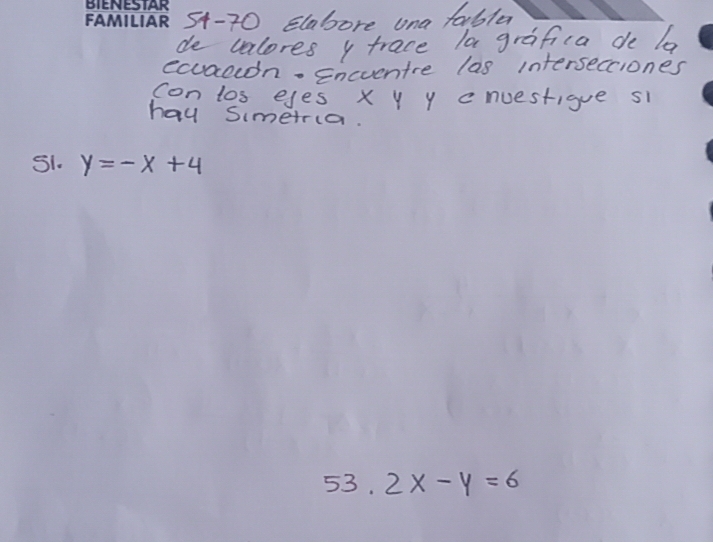 BIENESTAR
FAMILIAR 51-70 Elabore una tabla
de valores y trace la gráfica de la
ecuación. Encuentre las intersecciones
con los ejes x y y e nvestigue si
hay Simetria.
51. y = -x + 4
53. 2x - y = 6